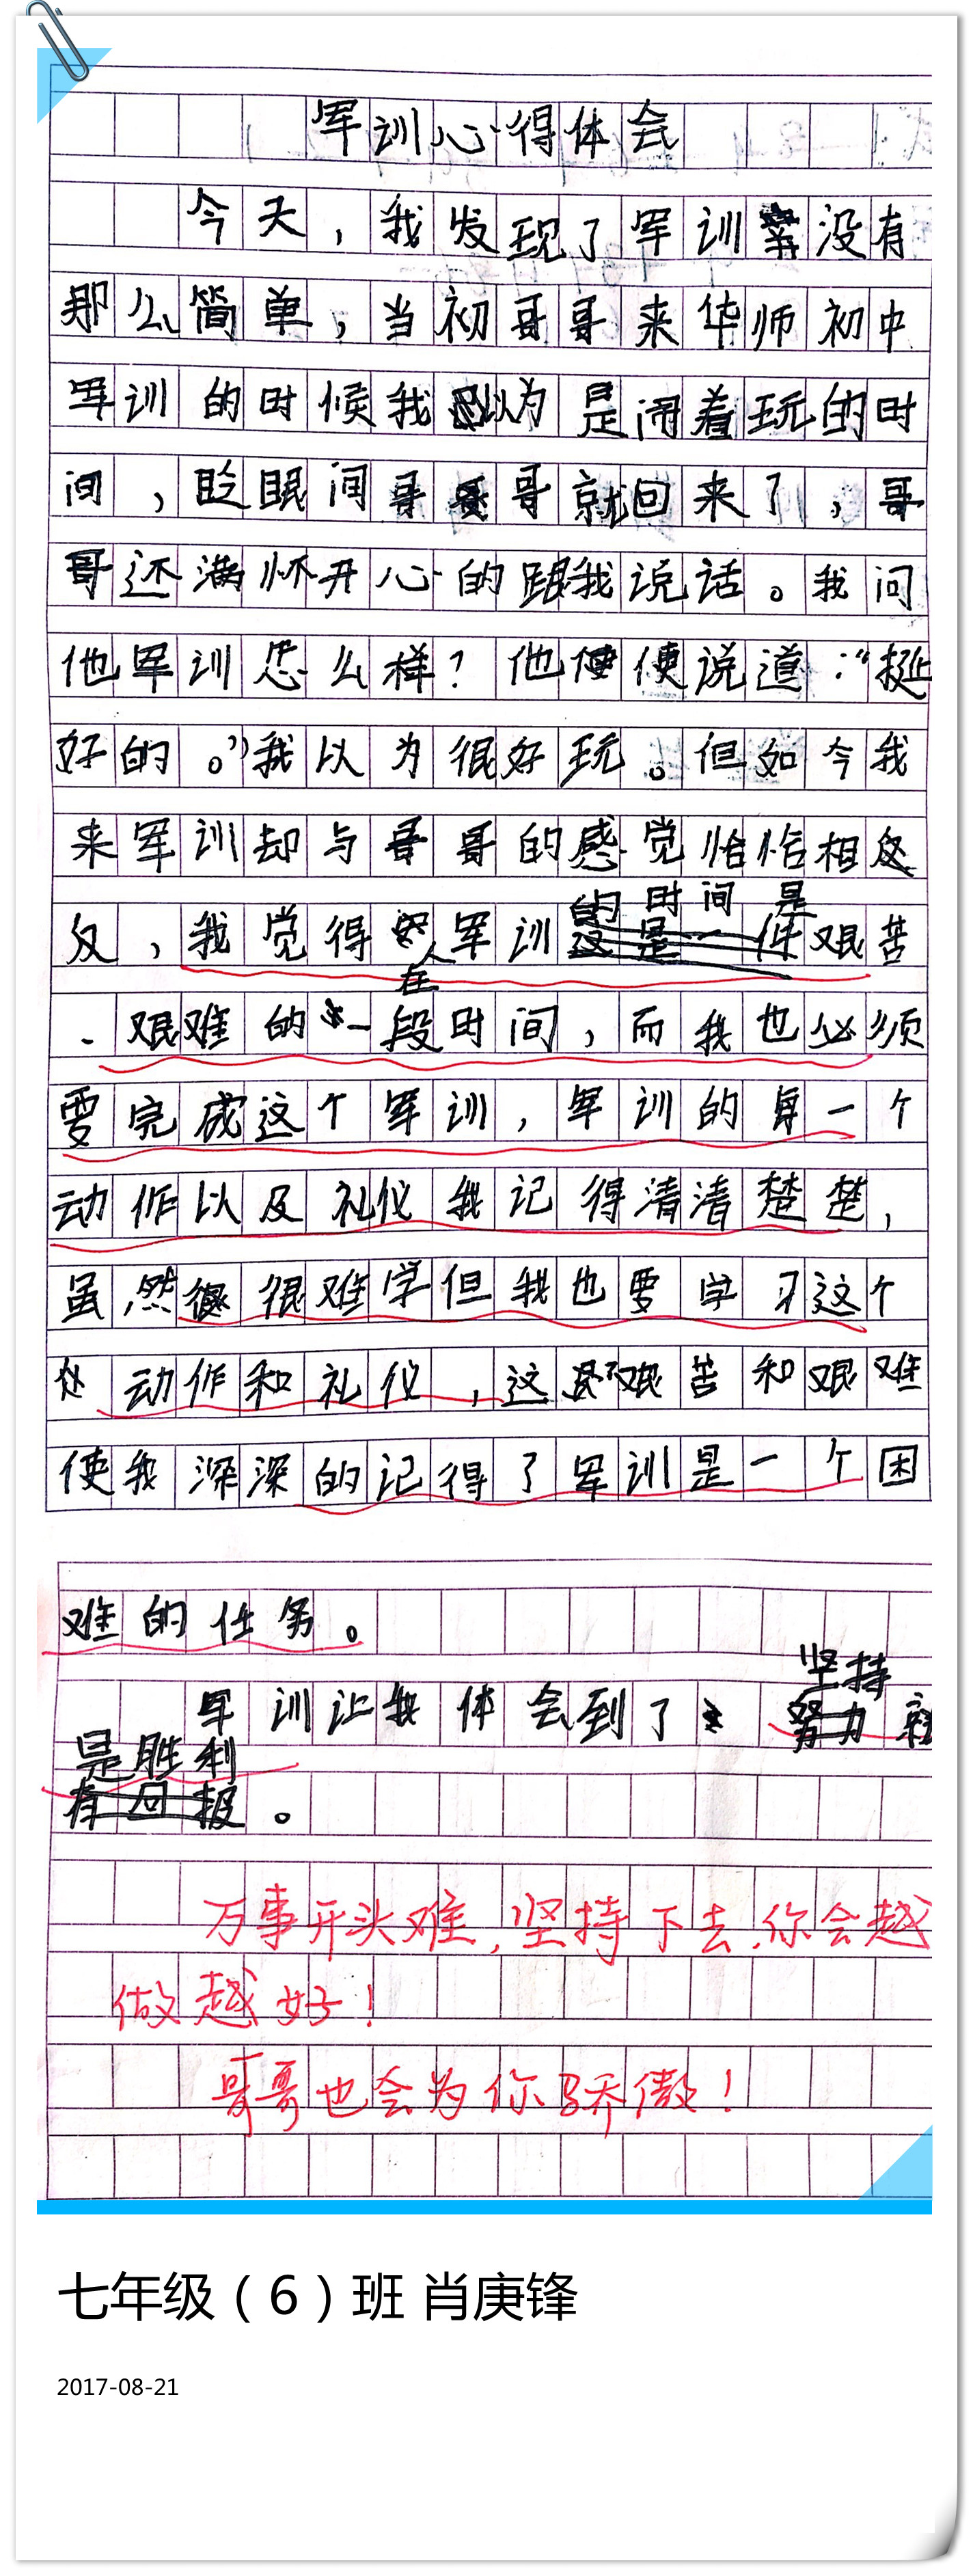 军训心得体会
今天，我发现了军训没有
那么简单，当初哥哥来华师初中
军训的时候我以为是闹着玩的时
间，眨眼间哥哥就回来了，哥
哥还满怀开心的跟我说话。我问
他军训怎么样？他便说道：“挺
好的。”我以为很好玩。但如今我
来军训却与哥哥的感觉恰恰相
反，我觉得军训的时间是艰苦
、艰难的一段时间，而我也必须
要完成这个军训，军训的每一个
动作以及礼仪我记得清清楚楚，
虽然很难学但我也要学习这个
动作和礼仪，这艰苦和艰难
使我深深的记得了军训是一个困
难的任务。
军训让我体会到了坚持就
是胜利。
万事开头难，坚持下去，你会越
做越好！
哥哥也会为你骄傲！
七年级（6）班 肖庚锋
2017-08-21